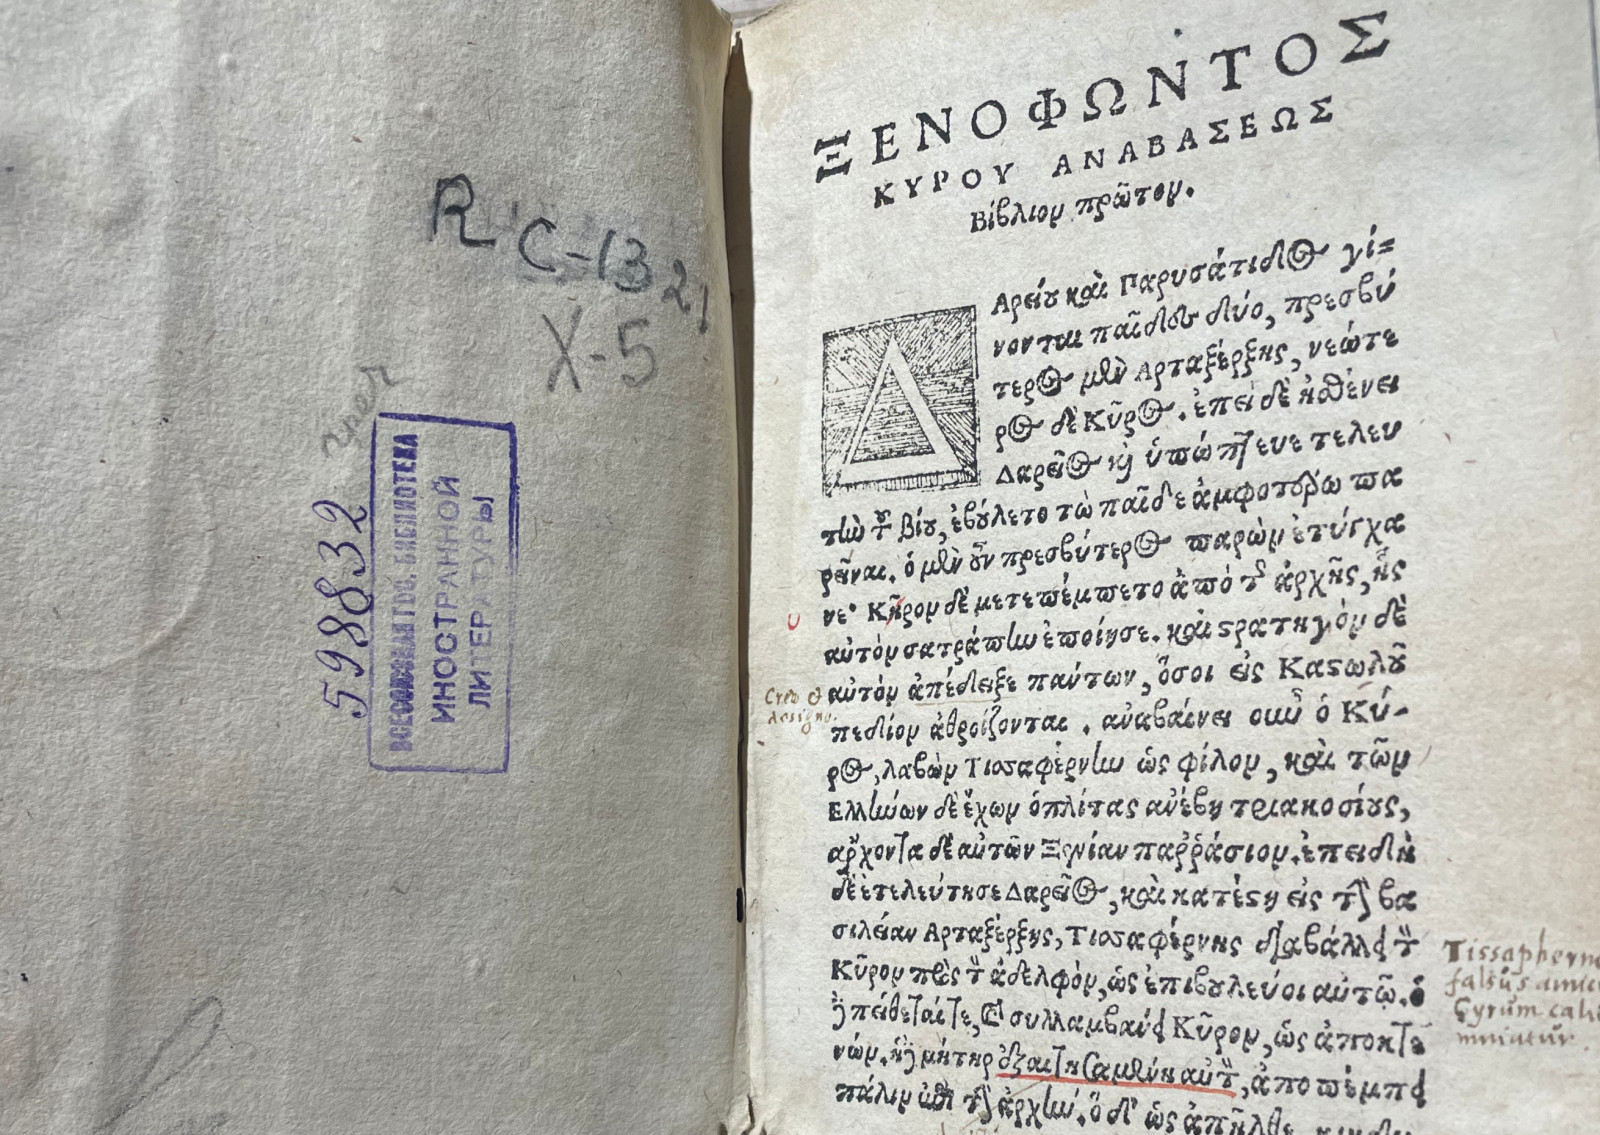 R C-13 21
X-5
598832
ВСЕСОЮЗНАЯ ГОС. БИБЛИОТЕКА
ИНОСТРАННОЙ
ЛИТЕРАТУРЫ
ΞΕΝΟΦΩΝΤΟΣ
ΚΥΡΟΥ ΑΝΑΒΑΣΕΩΣ
Βίβλιον πρῶτον.
ΔΑρείου καὶ Παρυσάτιδος γί=
νονται παῖδες δύο, πρεσβύ
τερος μὲν Αρταξέρξης, νεώτε
ρος δὲ Κῦρος. ἐπεὶ δὲ ἠσθένει
Δαρεῖος καὶ ὑπώπτευε τελευ
τὴν τοῦ βίου, ἐβούλετο τὼ παῖδε ἀμφοτέρω πα
ρεῖναι. ὁ μὲν οὖν πρεσβύτερος παρὼν ἐτύγχα
νε· Κῦρον δὲ μετεπέμπετο ἀπὸ τῆς ἀρχῆς, ἧς
αὐτὸν σατράπην ἐποίησε. καὶ στρατηγὸν δὲ
αὐτὸν ἀπέδειξε πάντων, ὅσοι εἰς Καστωλοῦ
πεδίον ἀθροίζονται. ἀναβαίνει οὖν ὁ Κύ-
ρος, λαβὼν Τισσαφέρνην ὡς φίλον, καὶ τῶν
Ελλήνων δὲ ἔχων ὁπλίτας ἀνέβη τριακοσίους,
ἄρχοντα δὲ αὐτῶν Ξενίαν παῤῥάσιον. ἐπειδὴ
δὲ ἐτελεύτησε Δαρεῖος, καὶ κατέστη εἰς τὴν βα
σιλείαν Αρταξέρξης, Τισσαφέρνης διαβάλλει τὸν
Κῦρον πρὸς τὸν ἀδελφὸν, ὡς ἐπιβουλεύοι αὐτῷ. ὁ
δὲ πείθεταί τε, καὶ συλλαμβάνει Κῦρον, ὡς ἀποκτε
νῶν. ἡ δὲ μήτηρ ἐξαιτησαμένη αὐτὸν, ἀποπέμπει
πάλιν ἐπὶ τὴν ἀρχὴν. ὁ δ' ὡς ἀπῆλθε
Creo &
Assigno.
Tissaphern
falsus amic
Cyrum calu
mniatur.